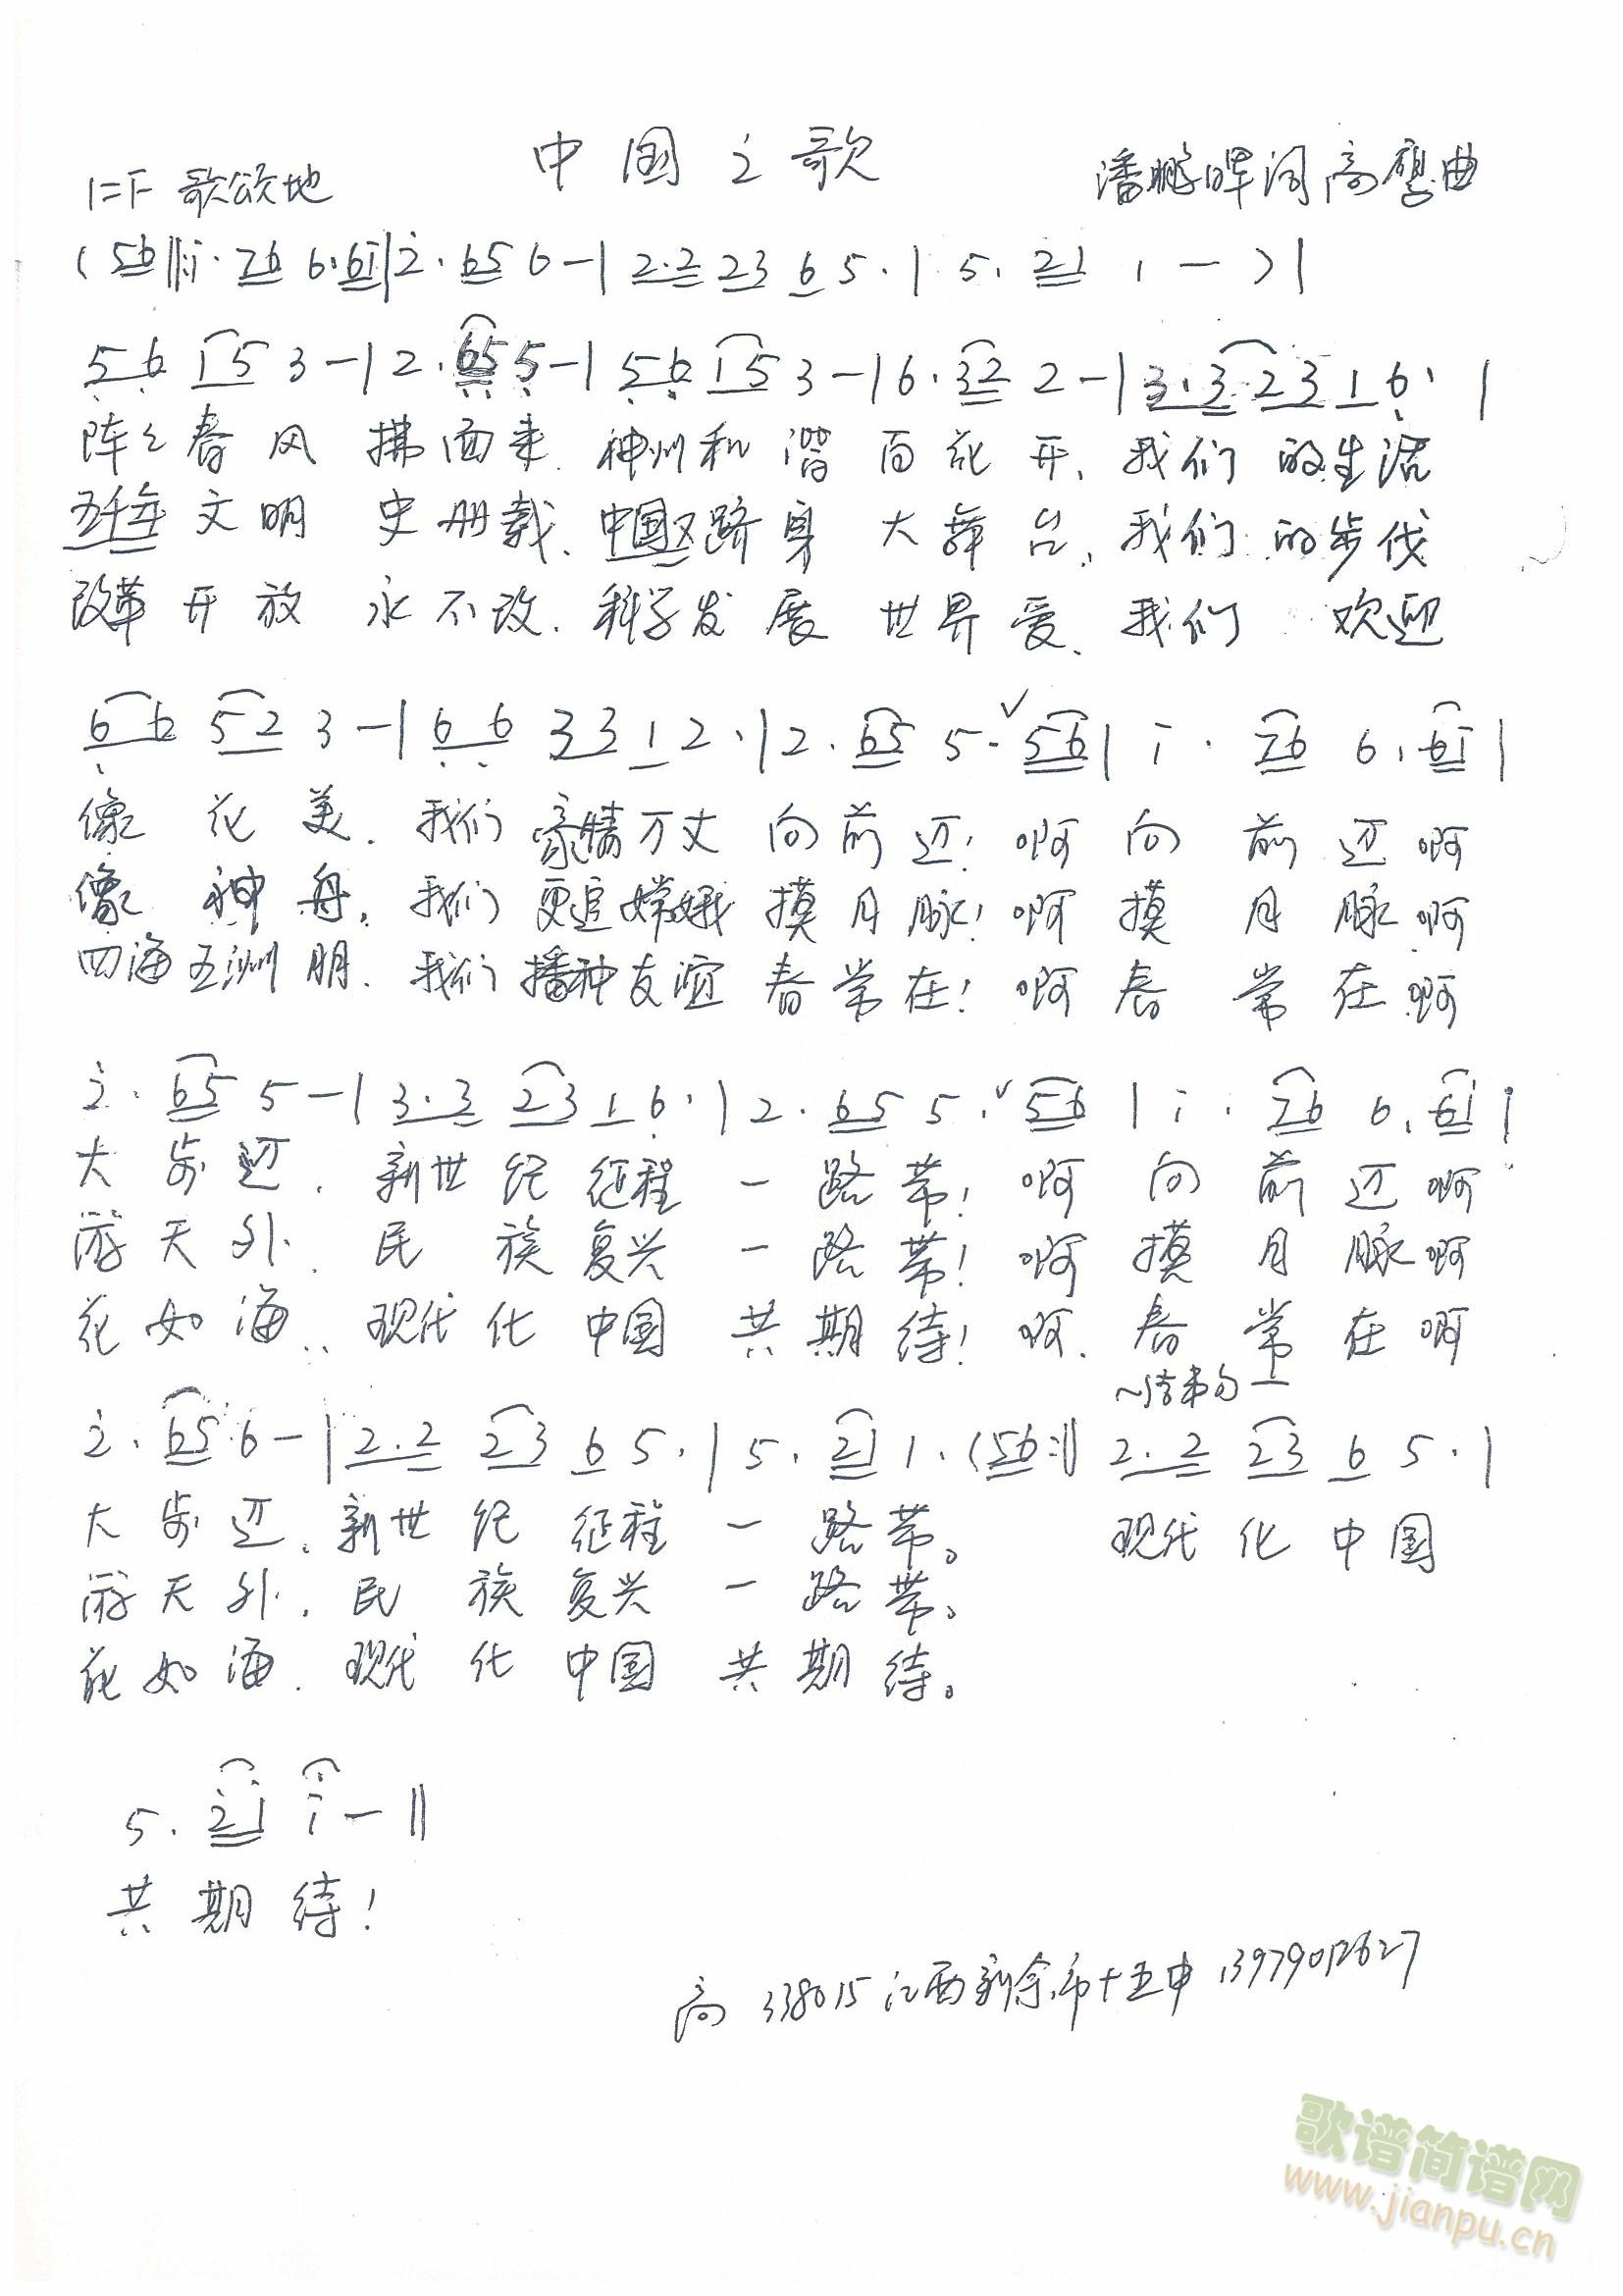 中国之歌
1=F 歌颂地 潘鹏晖词 高鹰曲
( 56 ‖: i· 76 6· 6i | 2· 65 6 - | 2·2 23 6 5· | 5· 21 1 - ) |
56 15 3 - | 2· 65 5 - | 56 15 3 - | 6· 32 2 - | 3·3 23 1 6· |
阵々春风 拂面来. 神州和谐 百花开, 我们的生活
五千年文明 史册载. 中国又跻身 大舞台, 我们的步伐
改革开放 永不改. 科学发展 世界爱. 我们 欢迎
6 6 52 3 - | 6 6 33 1 2· | 2· 65 5· ✓ 56 | i · 76 6· 6i |
像花美. 我们豪情万丈 向前迈! 啊 向前迈 啊
像神舟. 我们更追嫦娥 摸月脉! 啊 摸月脉 啊
四海五洲朋. 我们播种友谊 春常在! 啊 春常在 啊
2· 65 5 - | 3·3 23 1 6· | 2· 65 5· ✓ 56 | i · 76 6· 6i |
大步迈. 新世纪征程 一路带! 啊 向前迈 啊
游天外. 民族复兴 一路带! 啊 摸月脉 啊
花如海. 现代化中国 共期待! 啊. 春常在 啊
~结束句—
2· 65 6 - | 2·2 23 6 5· | 5· 21 1· (56 :‖ 2·2 23 6 5· |
大步迈. 新世纪征程 一路带。 现代化中国
游天外. 民族复兴 一路带。
花如海. 现代化中国 共期待。
5· 2i i - ‖
共期待!
高 338015 江西新余市十五中 13979012627
歌谱简谱网
www.jianpu.cn